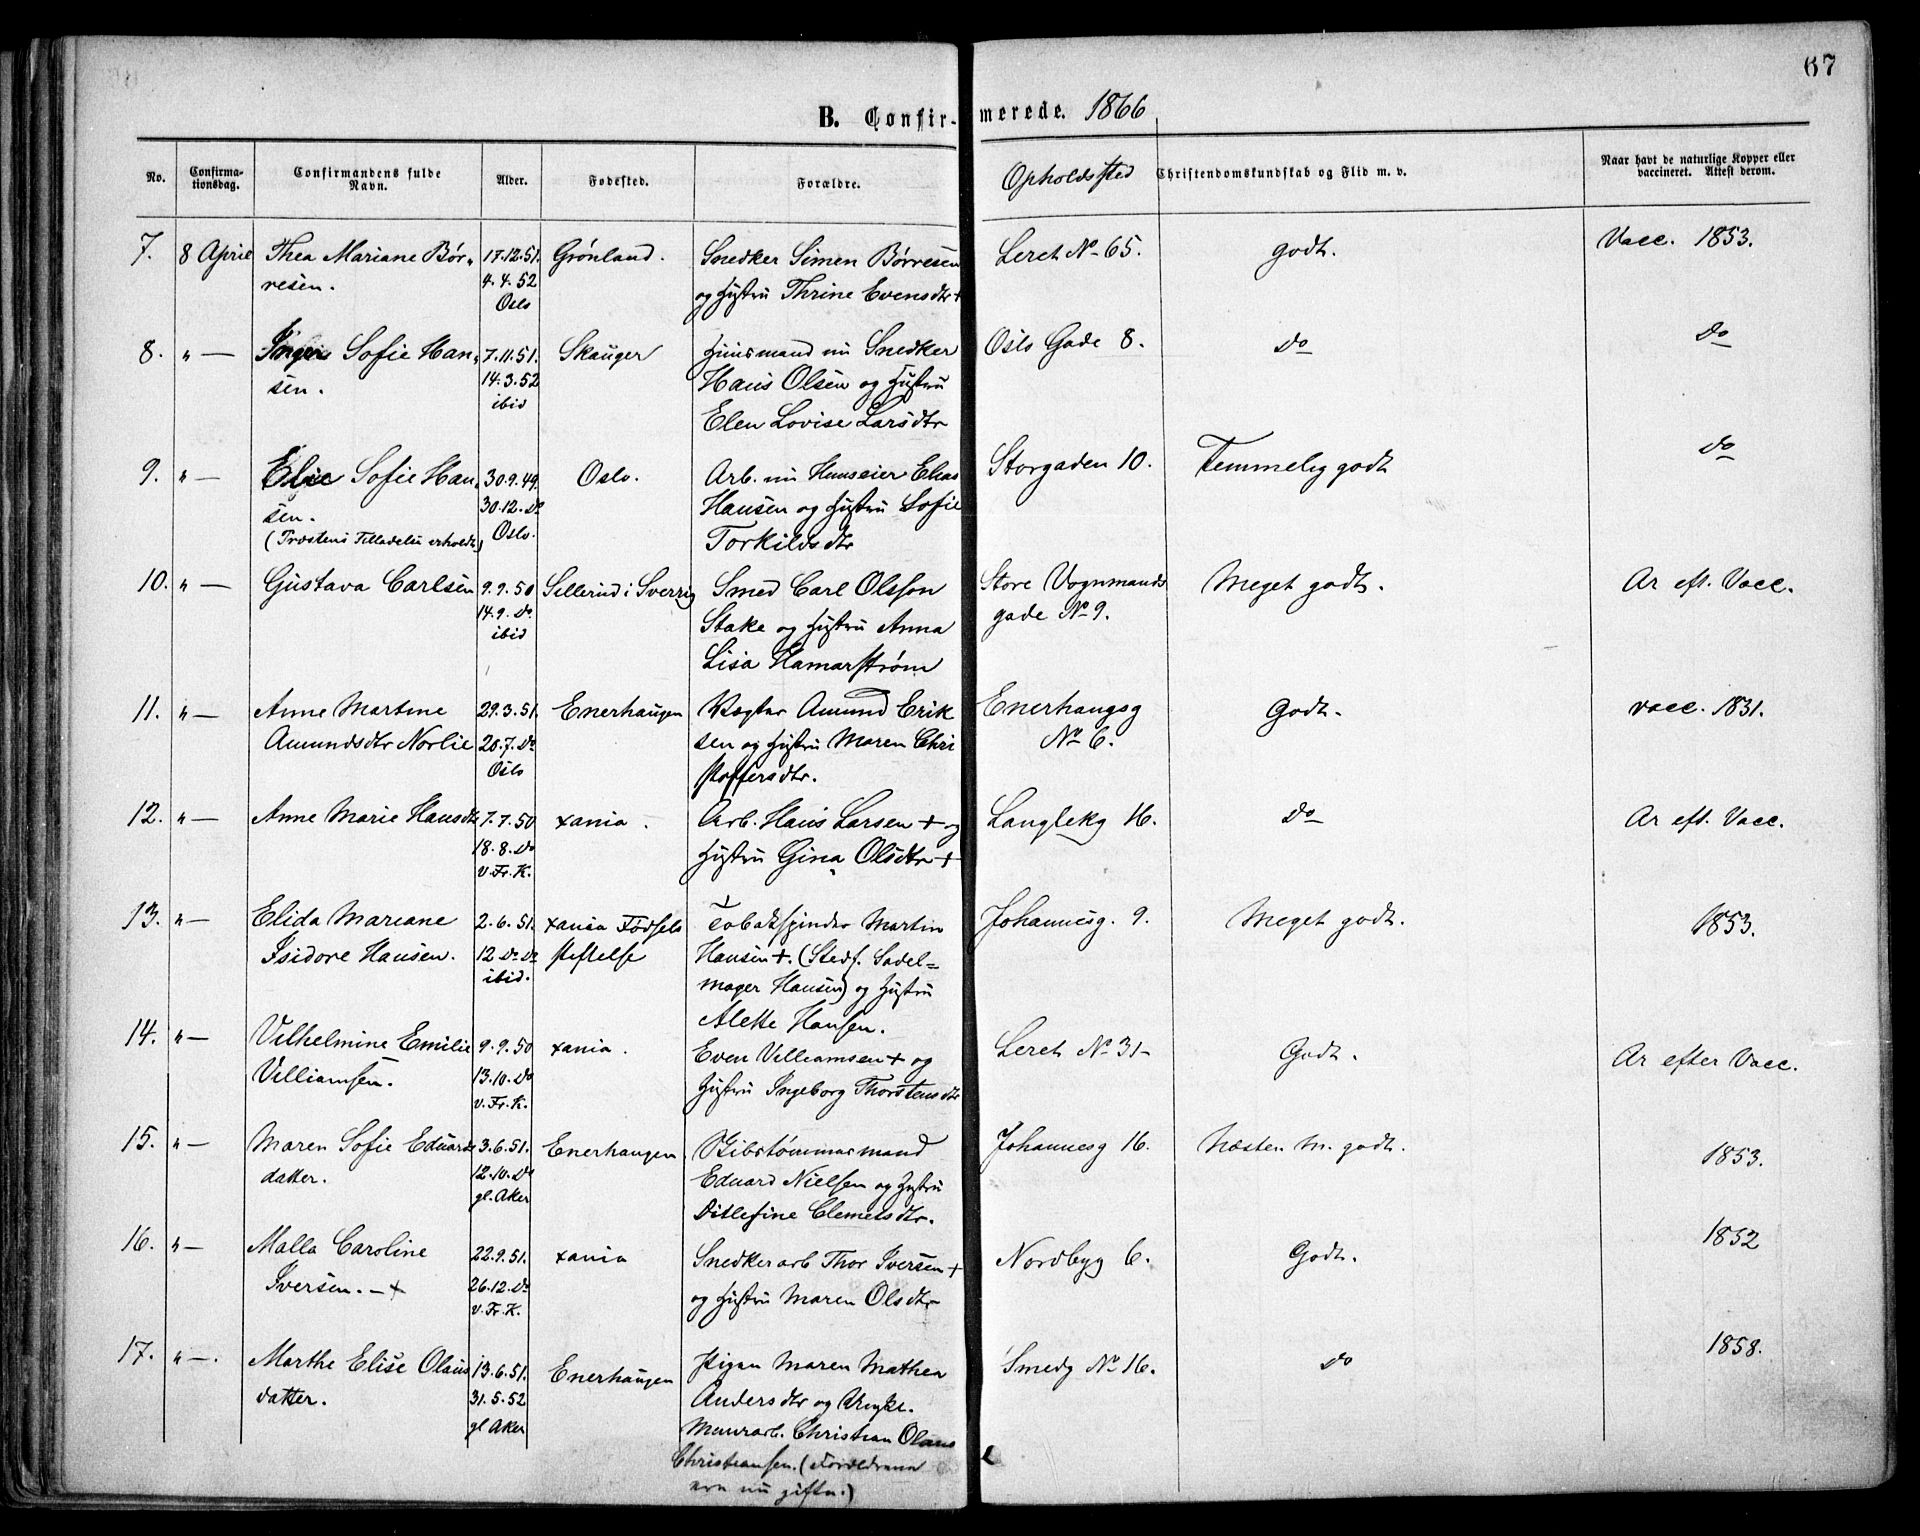 67
B. Confirmerede. 1866
No.
Confirmationsdag.
Confirmandens fulde Navn.
Alder.
Fødested.
Forældre.
Opholdssted
Christendomskundskab og Flid m. v.
Naar havt de naturlige Kopper eller vaccineret. Attest derom.
7. 8 April Thea Mariane Bør- 17.12.51. Grønland. Snedker Simen Børresen Leret No 65. godt. Vacc. 1853.
resen. 4.4.52 og Hustru Thrine Evensdtr +
Oslo
8. " — Inger Sofie Han- 7.11.51. Skauger Huusmand nu Snedker Oslo Gade 8. do do
sen. 14.3.52 Hans Olsen og Hustru
ibid Elen Lovise Larsdtr
9. " — Elise Sofie Han- 30.9.49. Oslo. Arb. nu Huuseier Elias Storgaden 10. Temmelig godt do
sen. 30.12. do Hansen og Hustru Sofie
(Provstens Tilladelse erholdt) Oslo. Torkildsdtr
10. " — Gustava Carlsen 9.9.50 Sillerud i Sverrig Smed Carl Olsson Store Vognmands Meget godt. Ar eft. Vacc.
14.9. do. Stake og Hustru Anna gade No 9.
ibid Lisa Hamarstrøm
11. " — Anne Martine 29.3.51. Enerhaugen Vægter Amund Erik Enerhaugsg Godt. vacc. 1831.
Amundsdtr Norlie 20.7. do sen og Hustru Maren Chri No 6.
Oslo stoffersdtr.
12. " — Anne Marie Hansdtr 7.7.50 xania. Arb. Hans Larsen + og Langlekg 16. do Ar eft. Vacc.
18.8. do Hustru Gina Olsdtr +
v. Fr. K.
13. " — Elida Mariane 2.6.51. xania Fødsels Tobakspinder Martin Johannesg. 9. Meget godt. 1853.
Isidore Hansen. 12 do. do stiftelse Hansen +. (Stedf. Sadel=
ibid. mager Hansen) og Hustru
Alette Hansen.
14. " — Vilhelmine Emilie 9.9.50 xania. Even Villiamsen + og Leret No 31- Godt. Ar efter Vacc.
Villiamsen. 13.10. do Hustru Ingeborg Thorstensdtr
v. Fr. K.
15. " — Maren Sofie Eduards 3.6.51. Enerhaugen Skibstømmermand Johannesg 16. Næsten m. godt. 1853.
datter. 12.10. do Eduard Nielsen og Hustru
gl. Aker Ditlefine Clemetsdtr.
16. " — Malla Caroline 22.9.51. xania Snedkerarb Thor Iversen + Nordbyg 6. Godt. 1852
Iversen. - + 26.12. do og Hustru Maren Olsdtr
v. Fr. K.
17. " —. Marthe Elise Olaus 13.6.51. Enerhaugen Pigen Maren Mathea Smedg No 16. do 1858.
datter. 31.5.52 Andersdtr og Ungk.
gl Aker Muurarb. Christian Olaus
Christiansen. (Forældrene
ere nu gifte.)